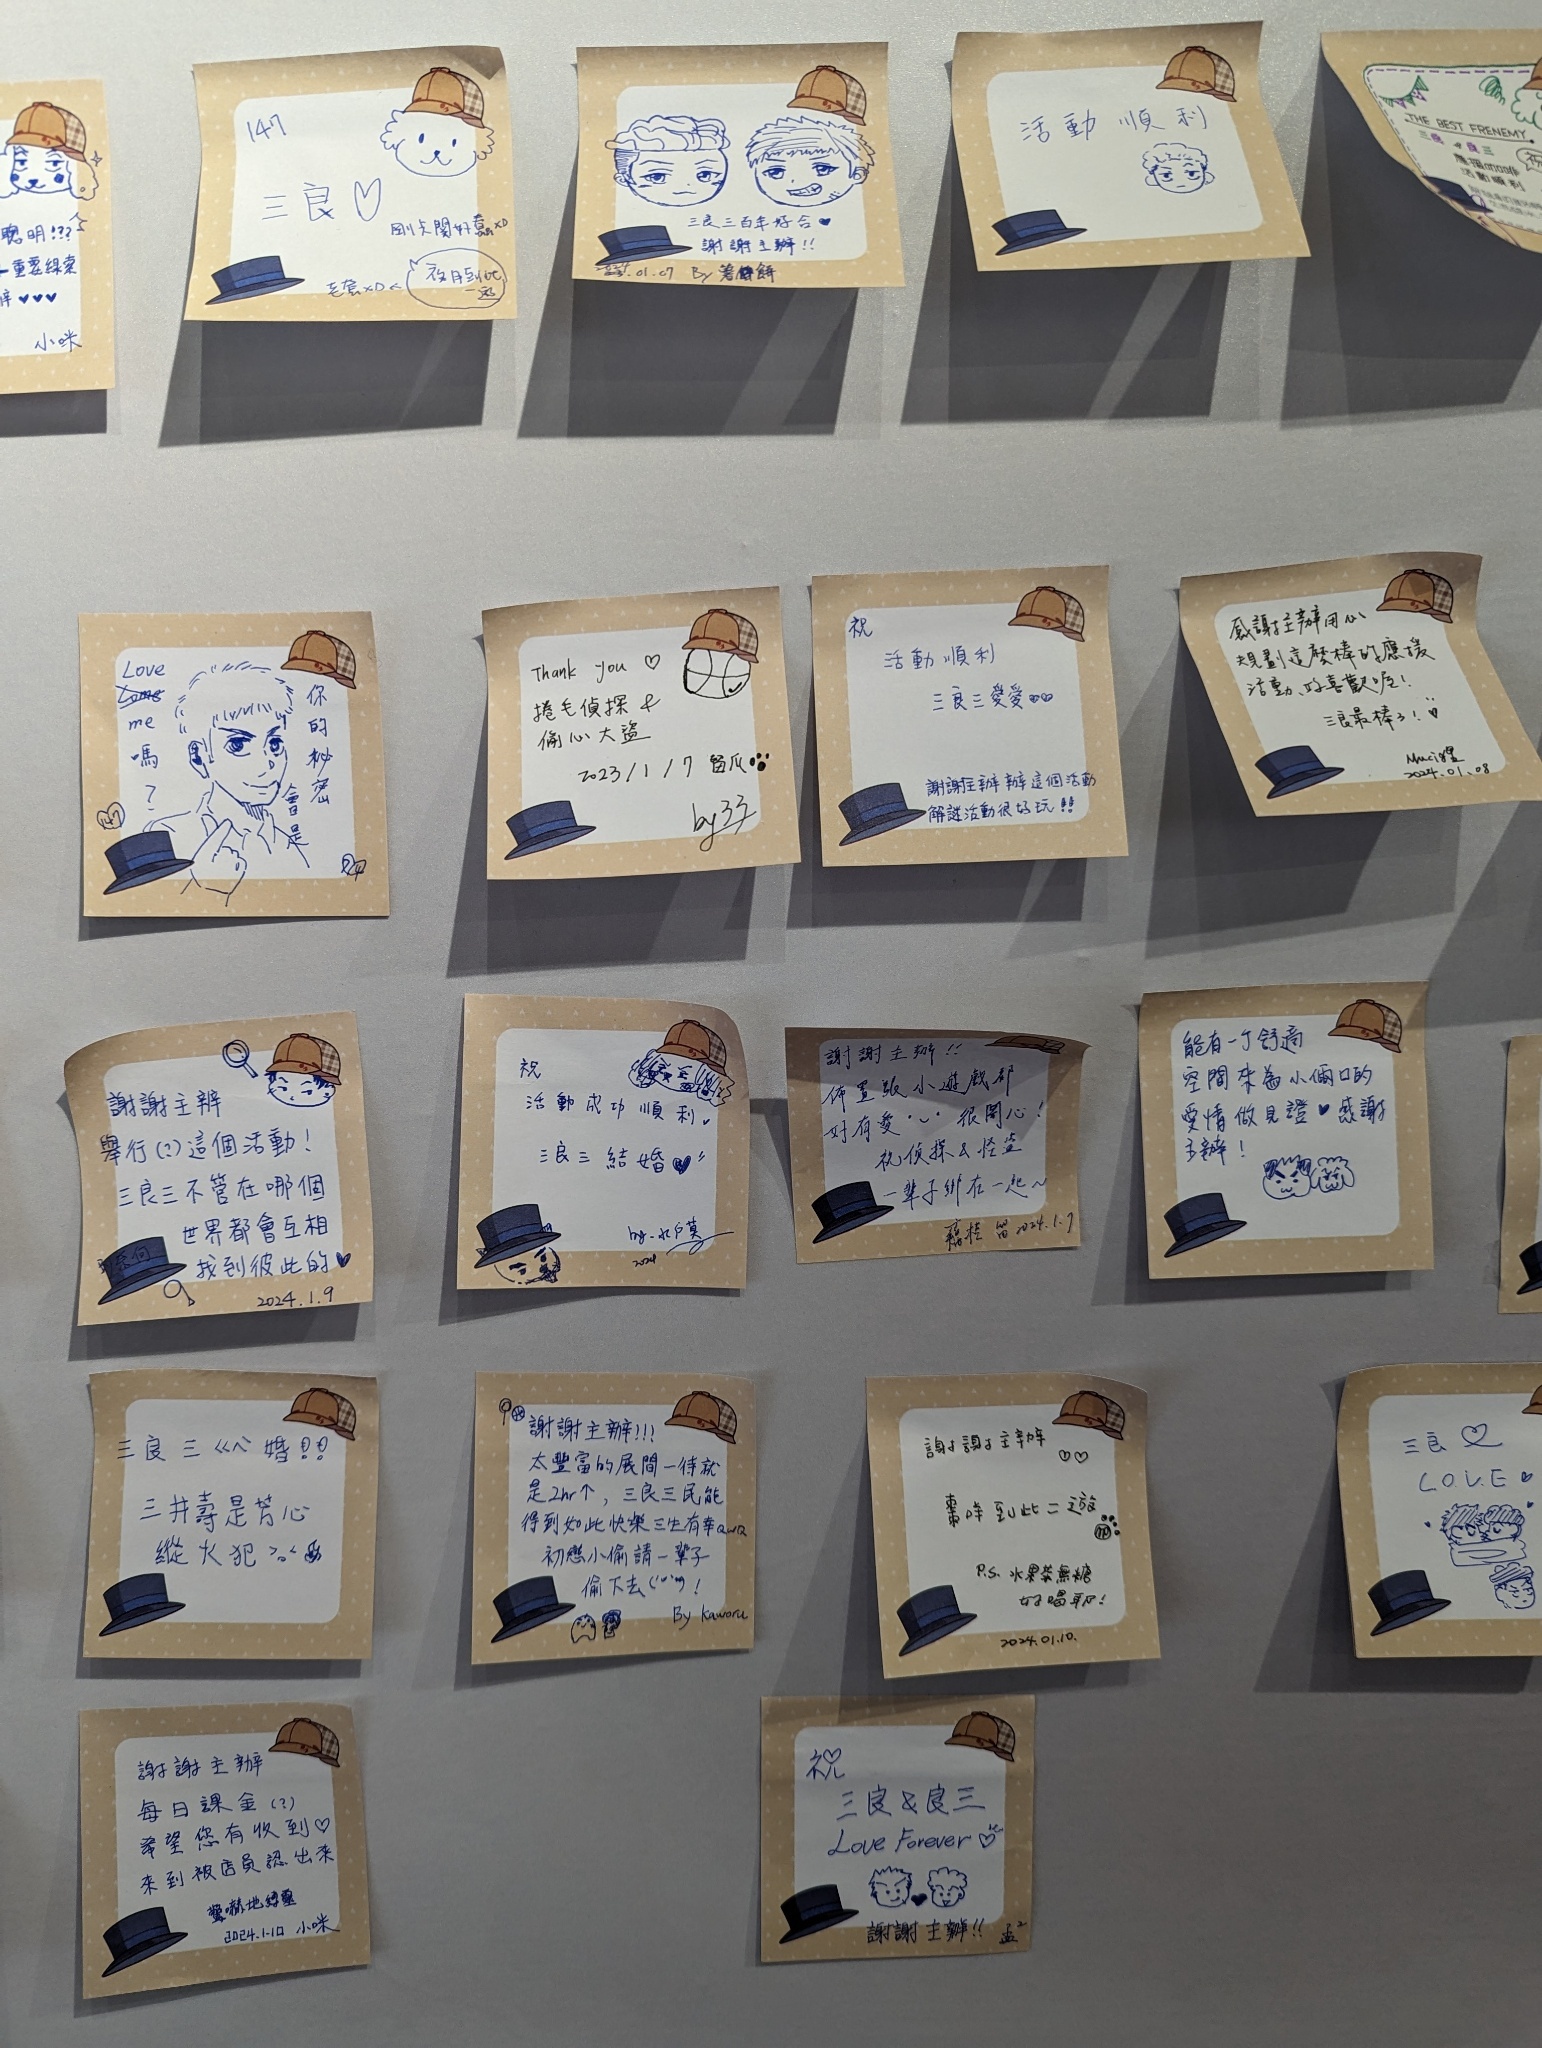 聰明!!?
重要線索
♥♥♥
小咪
147
三良♡
剛步關好蠢xD
夜月到此
一遊
三良三百年好合♥
謝謝主辦!!
.01.07 By
活動順利
THE BEST FRENEMY
三良 良三
活動順利
Love
me
嗎
?
你的秘密
會是
Thank you ♡
捲毛偵探 &
偷心大盜
2023/1/7 留爪
by 子
祝
活動順利
三良三愛愛♡♡
謝謝主辦辦這個活動
解謎活動很好玩!!
感謝主辦用心
規劃這麼棒的應援
活動、好喜歡呢!
三良最棒了!♥
2024.01.08
謝謝主辦
舉行(?)這個活動!
三良三不管在哪個
世界都會互相
找到彼此的♥
2024.1.9
祝
活動成功順利。
三良三結婚♥"
by.水戶莫
2024
謝謝主辦!!
佈置跟小遊戲都
好有愛'◡' 很開心!
祝偵探&怪盜
一輩子綁在一起~
留 2024.1.7
能有一個舒適
空間來為小倆口的
愛情做見證♥感謝
主辦!
三良三ㄍㄟ婚!!
三井壽是芳心
縱火犯
謝謝主辦!!!
太豐富的展間一待就
是2hr↑,三良三民能
得到如此快樂三生有幸QWQ
初戀小偷請一輩子
偷下去!
By kaworu
謝謝主辦
♡♡
棗咩到此二遊
P.S. 水果茶無糖
好喝耶!
2024.01.10.
三良♡
L.O.V.E ♥
謝謝主辦
每日課金(?)
希望您有收到♡
來到被店員認出來
2024.1.10 小咪
祝
三良&良三
Love Forever♡
謝謝主辦!!